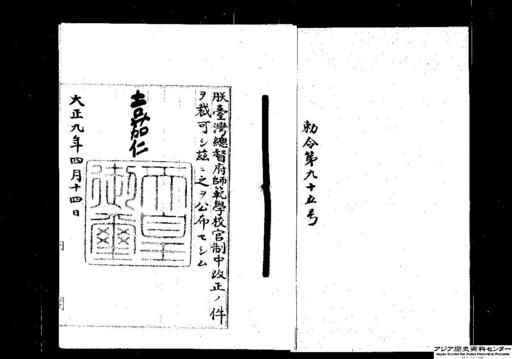 勅令第九十五号
朕臺灣總督府師範學校官制中改正ノ件
ヲ裁可シ茲ニ之ヲ公布セシム
嘉仁
天皇
御璽
大正九年四月十四日
内閣
アジア歴史資料センター
Japan Center for Asian Historical Records